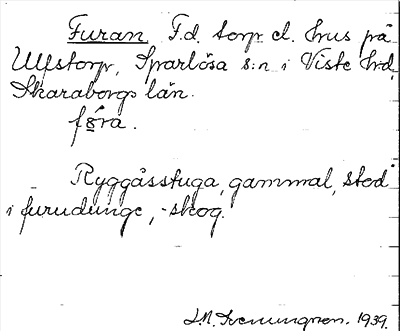 Furan F.d. torp el. hus på
Ulfstorp, Sparlösa s:n i Viste hrd,
Skaraborgs län.
fσ̲́ra.
Ryggåsstuga, gammal, stod
i furudunge, -skog.
1939.